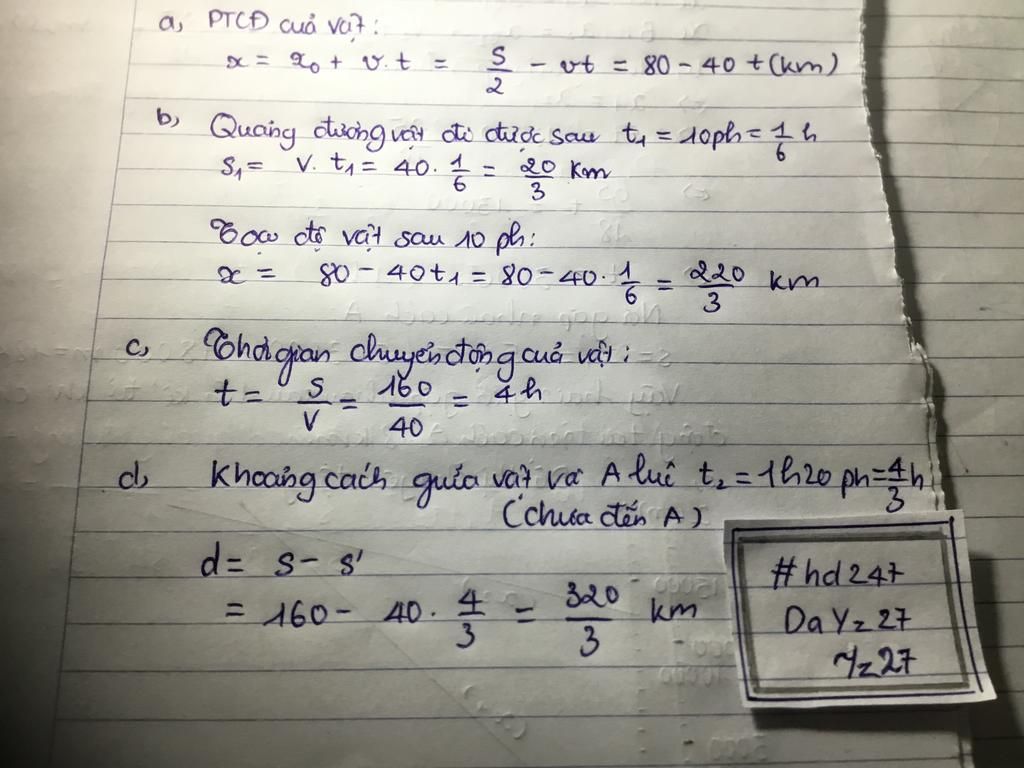 a, PTCĐ cuả vật:
x = x₀ + v.t = S/2 - vt = 80 - 40 t (km)
b, Quãng đường vật đi được sau t₁ = 10ph = 1/6 h
S₁ = v. t₁ = 40. 1/6 = 20/3 km
Toạ độ vật sau 10 ph:
x = 80 - 40t₁ = 80 - 40. 1/6 = 220/3 km
c, Thời gian chuyển động cuả vật:
t = S/v = 160/40 = 4h
d, Khoảng cách giữa vật và A lúc t₂ = 1h20 ph = 4/3 h
(chưa đến A)
d = s - s'
= 160 - 40. 4/3 = 320/3 km
#hd247
DaYz27
Yz27